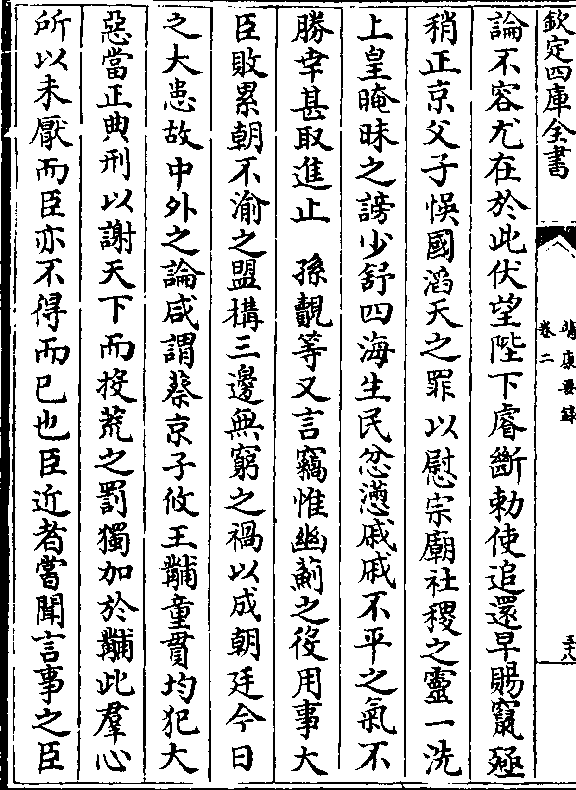 欽定四庫全書
靖康要錄
卷二
五十八
論不容尤在於此伏望陛下睿斷勅使追還早賜竄殛
稍正京父子悞國滔天之罪以慰宗廟社稷之靈一洗
上皇晻昧之謗少舒四海生民忿懣戚戚不平之氣不
勝幸甚取進止　孫覿等又言竊惟幽薊之役用事大
臣敗累朝不渝之盟構三邊無窮之禍以成朝廷今日
之大患故中外之論咸謂蔡京子攸王黼童貫均犯大
惡當正典刑以謝天下而投荒之罰獨加於黼此羣心
所以未厭而臣亦不得而已也臣近者嘗聞言事之臣